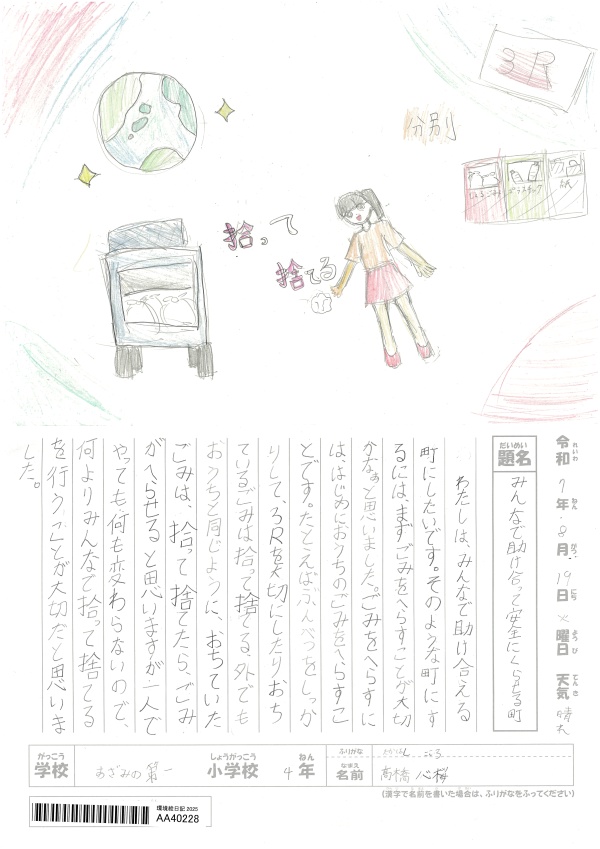 3R
分別
もえるごみ
プラスチック
紙
拾って
捨てる
令和7年8月19日火曜日 天気 晴れ
題名 みんなで助け合って安全にくらせる町
わたしは、みんなで助け合える
町にしたいです。そのような町にす
るには、まずごみをへらすことが大切
かなぁと思いました。ごみをへらすに
は、はじめにおうちのごみをへらすこ
とです。たとえばぶんべつをしっか
りして、3Rを大切にしたりおち
ているごみは拾って捨てる、外でも
おうちと同じように、おちていた
ごみは、拾って捨てたら、ごみ
がへらせると思いますが一人で
やっても何も変わらないので、
何よりみんなで拾って捨てる
を行うことが大切だと思いま
した。
がっこう 学校 あざみの第一 しょうがっこう 小学校 4 ねん 年
ふりがな
なまえ 名前 高橋 心桜
(漢字で名前を書いた場合は、ふりがなをふってください)
環境絵日記 2025
AA40228